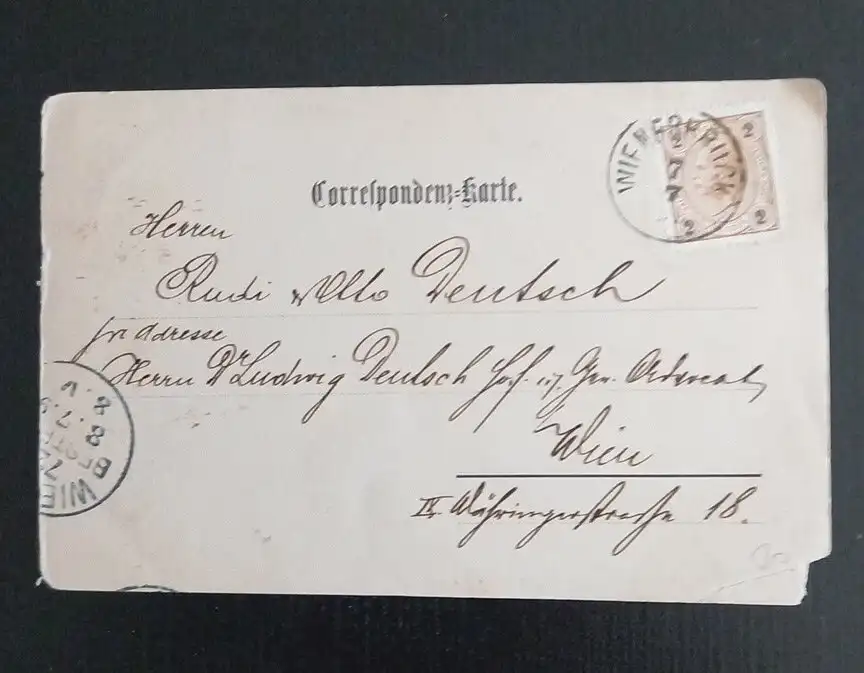 Correspondenz-Karte.
2 2
2 2
Herren
Rudi & Otto Deutsch
pr Adresse
Herrn Dr Ludwig Deutsch Hof u. Ger. Advocat
Wien
IX. Währingerstrasse 18.
WIEN